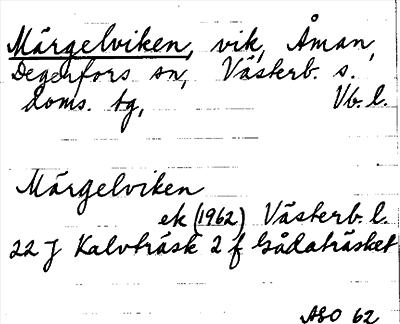 Märgelviken, vik, Åman,
Degerfors sn, Västerb. s.
doms. tg, Vb. l.
Märgelviken
ek (1962) Västerb. l.
22 J Kalvträsk 2 f Gådaträsket
ASO 62